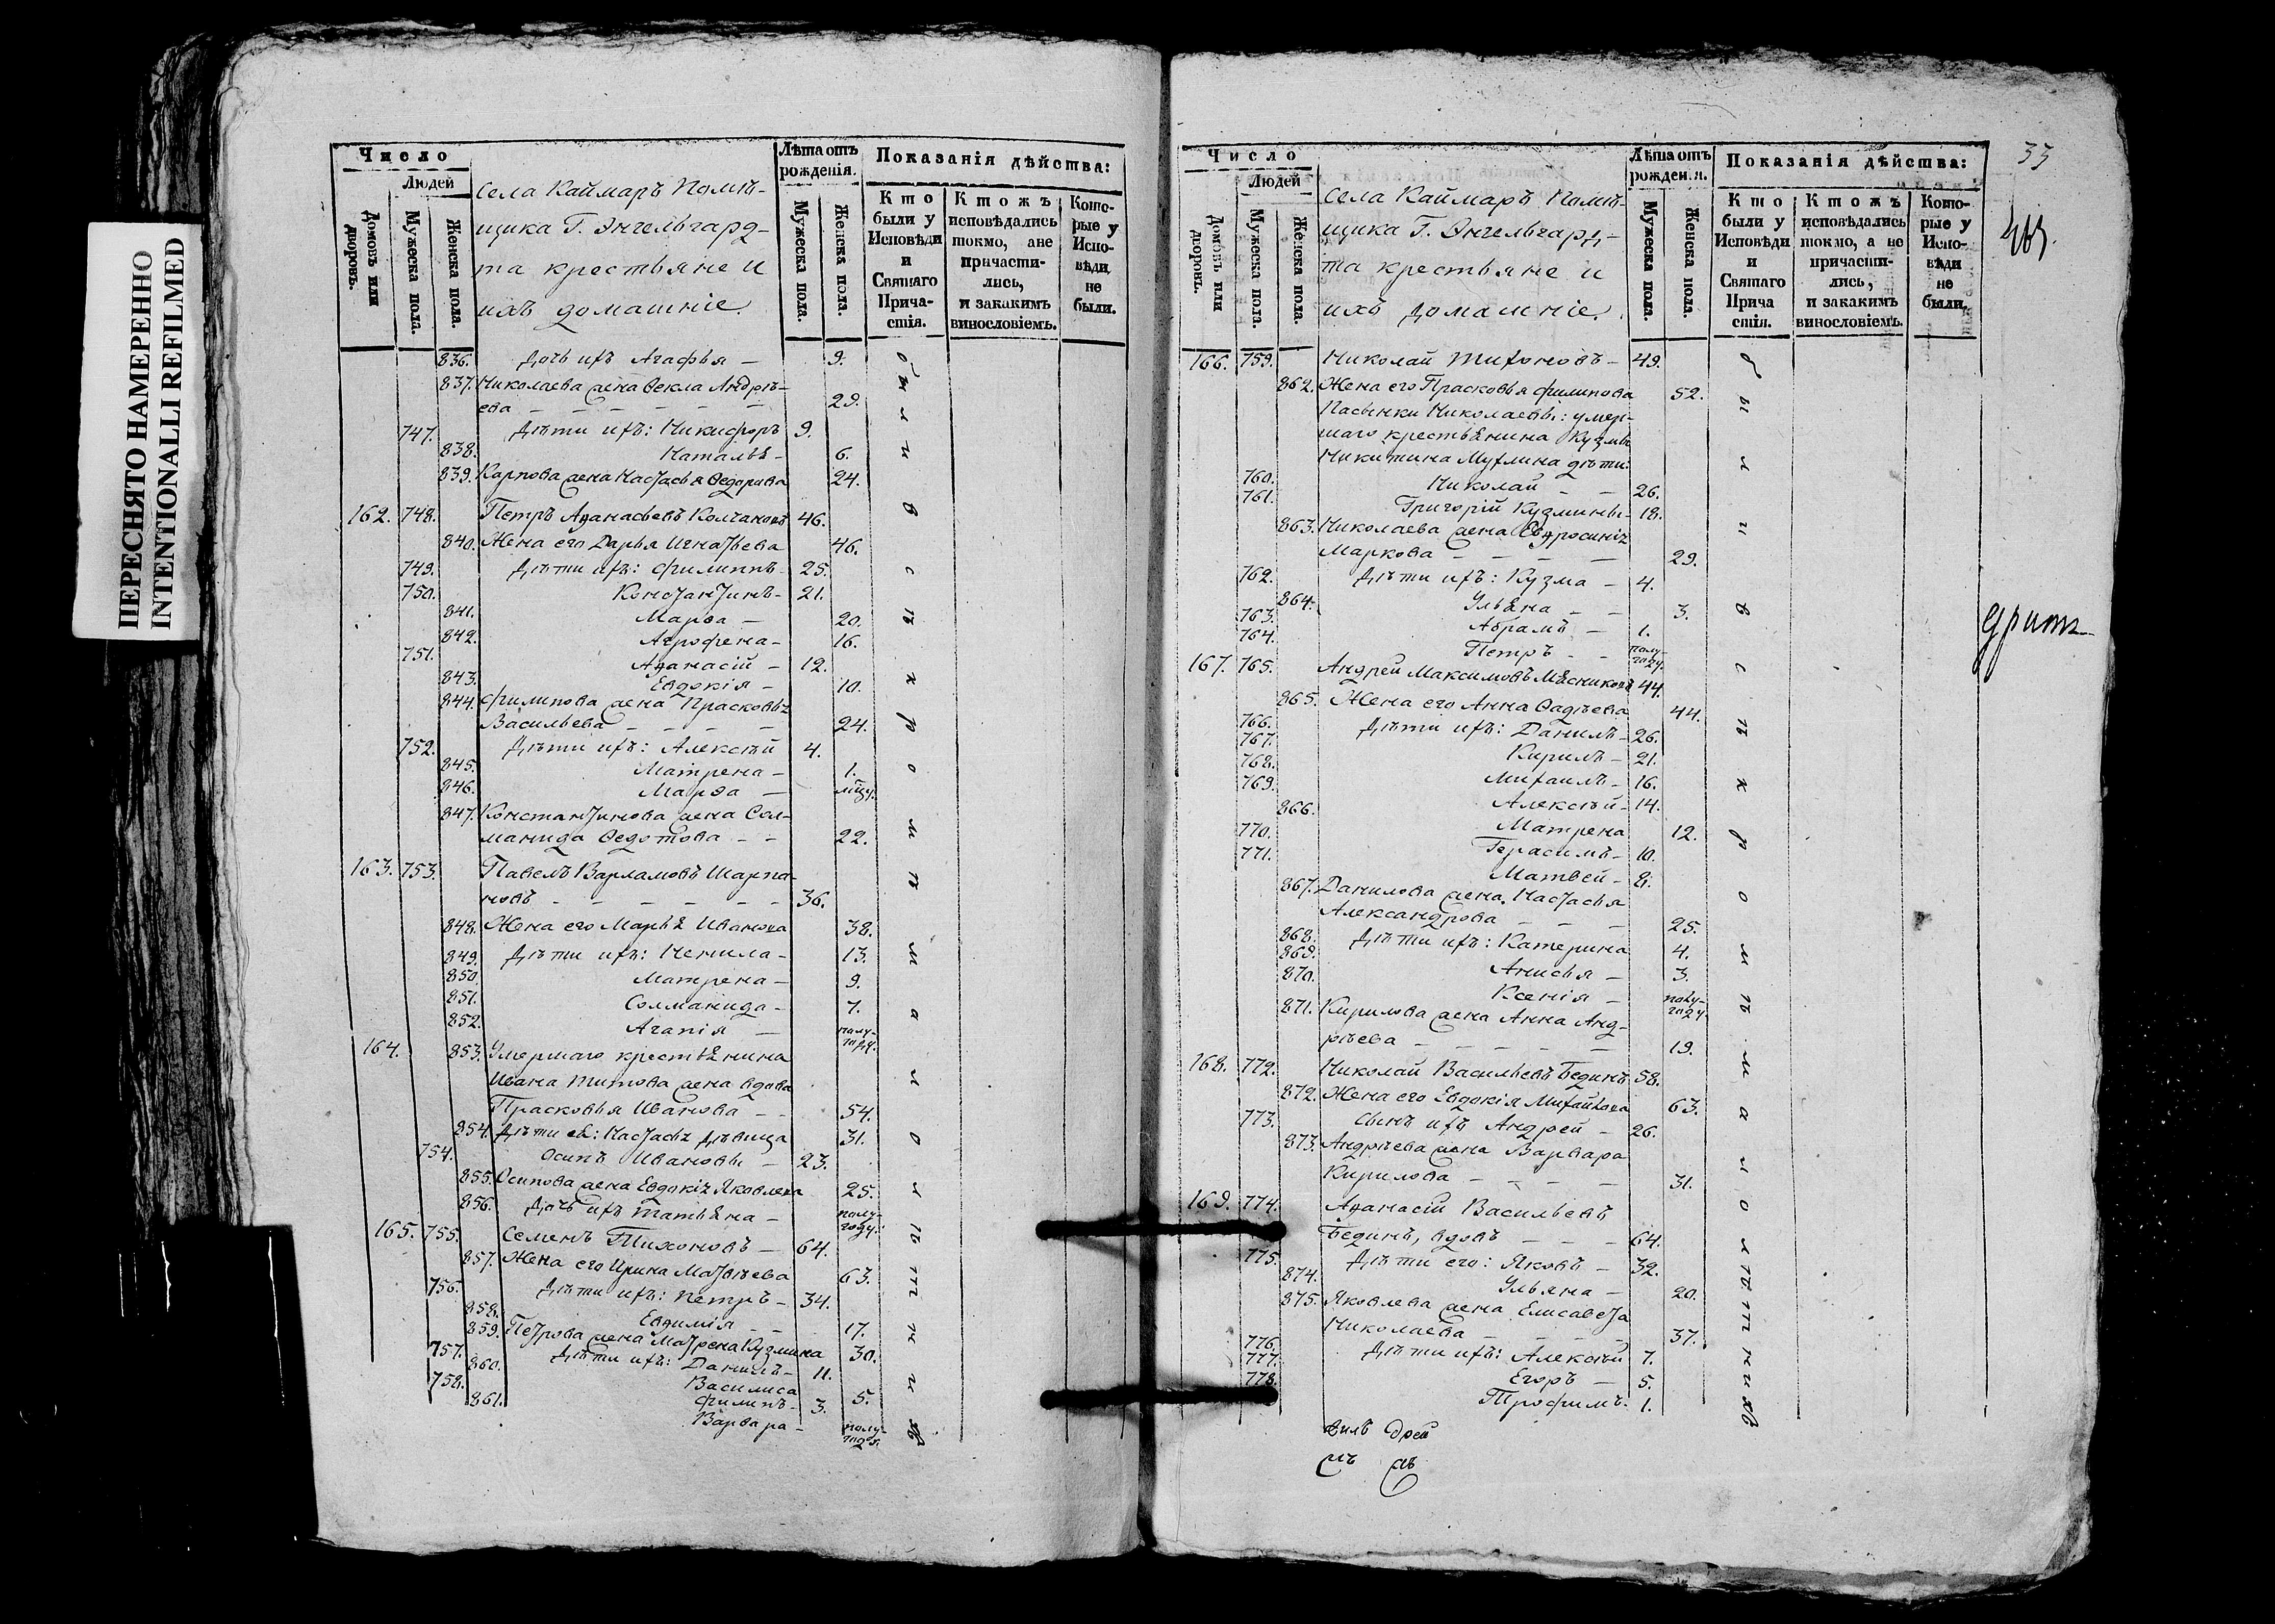 ПЕРЕСНЯТО НАМЕРЕННО
INTENTIONALLI REFILMED
Число
Людей
Домовъ или дворовъ.
Мужеска пола.
Женска пола.
села Каймаръ Помѣ-
щика Г. Энгельгард-
та крестьяне и
ихъ домашніе.
Лѣта отъ рожденія.
Мужеска пола.
Женска пола.
Показанія дѣйства:
Кто были у Исповѣди и Святаго Причастія.
Ктожъ исповѣдались токмо, ане причасти-лись, и закакимъ винословіемъ.
Кото-рые у Испо-вѣди не были.
836. Дочь ихъ Агафья — 9.
837. Николаева жена Ѳекла Андрѣ-
ева — — — — — — 29.
747. Дѣти ихъ: Никифоръ 9.
838. Наталья — 6.
839. Карпова жена Настасья Ѳедорова 24.
162. 748. Петръ Аѳанасьевъ Колчановъ 46.
840. Жена его Дарья Игнатьева 46.
749. Дѣти ихъ: Филиппъ — 25.
750. Константинъ — 21.
841. Марѳа — 20.
842. Агрофена — 16.
751. Аѳанасій — 12.
843. Евдокія — 10.
844. Филипова жена Прасковья
Васильева — — — — 24.
752. Дѣти ихъ: Алексѣй 4.
845. Матрена — 1.
846. Марѳа — мцу.
847. Константинова жена Сол-
манида Ѳедотова — — 22.
163. 753. Павелъ Варламовъ Шарпа-
новъ — — — — — — 36.
848. Жена его Марья Иванова 38.
849. Дѣти ихъ: Ненила — 13.
850. Матрена — 9.
851. Солманида — 7.
852. Агапія — полу-году.
164. 853. Умершаго крестьянина
Ивана Титова жена вдова
Прасковья Иванова — — 54.
854. Дѣти ея: Настасья дѣвица 31.
754. Осипъ Ивановы — 23.
855. Осипова жена Евдокія Яковлева 25.
856. Дочь ихъ Татьяна — полу-году.
165. 755. Семенъ Тихоновъ — 64.
857. Жена его Ирина Матвѣева 63.
756. Дѣти ихъ: Петръ — 34.
858. Евдимія — — 17.
859. Петрова жена Матрена Кузмина 30.
757. Дѣти ихъ: Данилъ — 11.
860. Василиса 5.
758. Филипъ — 3.
861. Варвара — полу-году.
были в с ѣ х р о т ѣ
Число
Людей
Домовъ или дворовъ.
Мужеска пола.
Женска пола.
села Каймаръ Помѣ-
щика Г. Энгельгард-
та крестьяне и
ихъ домашніе.
Лѣта отъ рожденія.
Мужеска пола.
Женска пола.
Показанія дѣйства:
Кто были у Исповѣди и Святаго Прича стія.
Ктожъ исповѣдались токмо, а не причасти-лись, и закакимъ винословіемъ.
Кото-рые у Испо-вѣди не были.
33
166. 759. Николай Тихоновъ — 49.
862. Жена его Прасковья Филипова 52.
Пасынки Николаевы: умер-
шаго крестьянина Кузмы
Никитина Мухлина дѣти:
760. Николай — — 26.
761. Григорій Кузмины — 18.
863. Николаева жена Ефросинія
Маркова — — — — 29.
762. Дѣти ихъ: Кузма — 4.
864. Ульяна — — 3.
763. Абрамъ — 1.
764. Петръ — — полу-году.
167. 765. Андрей Максимовъ Мясниковъ 44.
865. Жена его Анна Ѳадѣева 44.
766. Дѣти ихъ: Данилъ — 26.
767. Кирилъ — 21.
768. Михаилъ — 16.
769. Алексѣй — 14.
866. Матрена 12.
770. Герасимъ — 10.
771. Матвей — 8.
867. Данилова жена Настасья
Александрова — — 25.
868. Дѣти ихъ: Катерина 4.
869. Анисья — 3.
870. Ксенія — полу-году.
871. Кирилова жена Анна Анд-
рѣева — — — — — 19.
168. 772. Николай Васильевъ Бединъ 58.
872. Жена его Евдокія Михайлова 63.
773. Сынъ ихъ Андрей — 26.
873. Андрѣева жена Варвара
Кирилова — — — — 31.
169. 774. Аѳанасій Васильевъ
Бединъ, вдовъ — — — 64.
775. Дѣти его: Яковъ — 32.
874. Ульяна — 20.
875. Яковлева жена Елисавета
Николаева — — — — 37.
776. Дѣти ихъ: Алексѣй 7.
777. Егоръ — 5.
778. Трофимъ. 1.